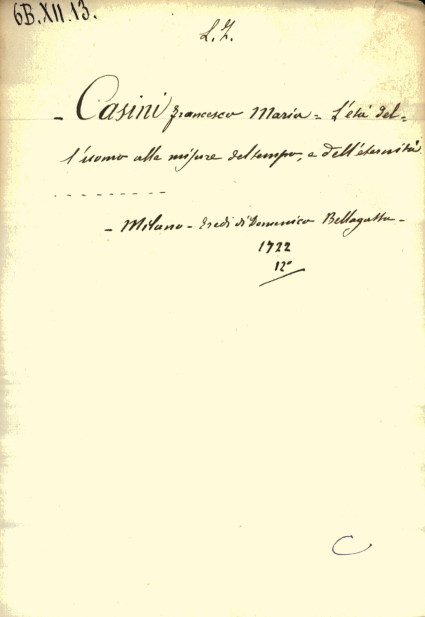 6B.XII.13.
L.Z.
- Casini Francesco Maria = L'età del=
l'uomo alle misure del tempo, e dell'eternità
- - - - - - - - -
- Milano - Eredi di Domenico Bellagatta -
1722
12°
C